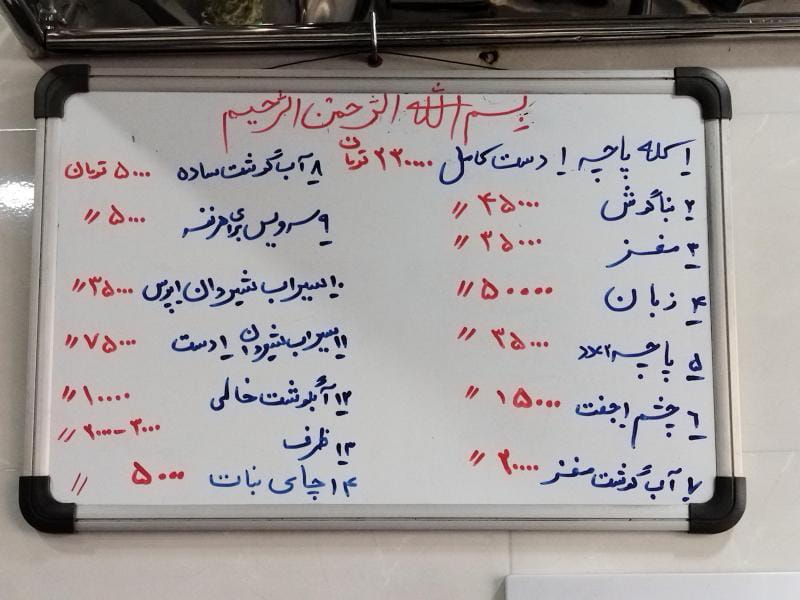 بسم الله الرحمن الرحیم
۱ کله پاچه ۱ دست کامل ۲۳۰۰۰۰ تومان
۲ بناگوش ۴۵۰۰۰ 〃
۳ مغز ۳۵۰۰۰ 〃
۴ زبان ۵۰۰۰۰ 〃
۵ پاچه ۲عدد ۳۵۰۰۰ 〃
۶ چشم ۱جفت ۱۵۰۰۰ 〃
۷ آب گوشت مغز ۲۰۰۰۰ 〃
۸ آب گوشت ساده ۵۰۰۰ تومان
۹ سرویس برای هرنفر ۵۰۰۰ 〃
۱۰ سیراب شیردان ۱پرس ۳۵۰۰۰ 〃
۱۱ سیراب شیردان ۱دست ۷۵۰۰۰ 〃
۱۲ آبگوشت خالی ۱۰۰۰۰ 〃
۱۳ ظرف ۳۰۰۰-۲۰۰۰ 〃
۱۴ چای نبات ۵۰۰۰ 〃